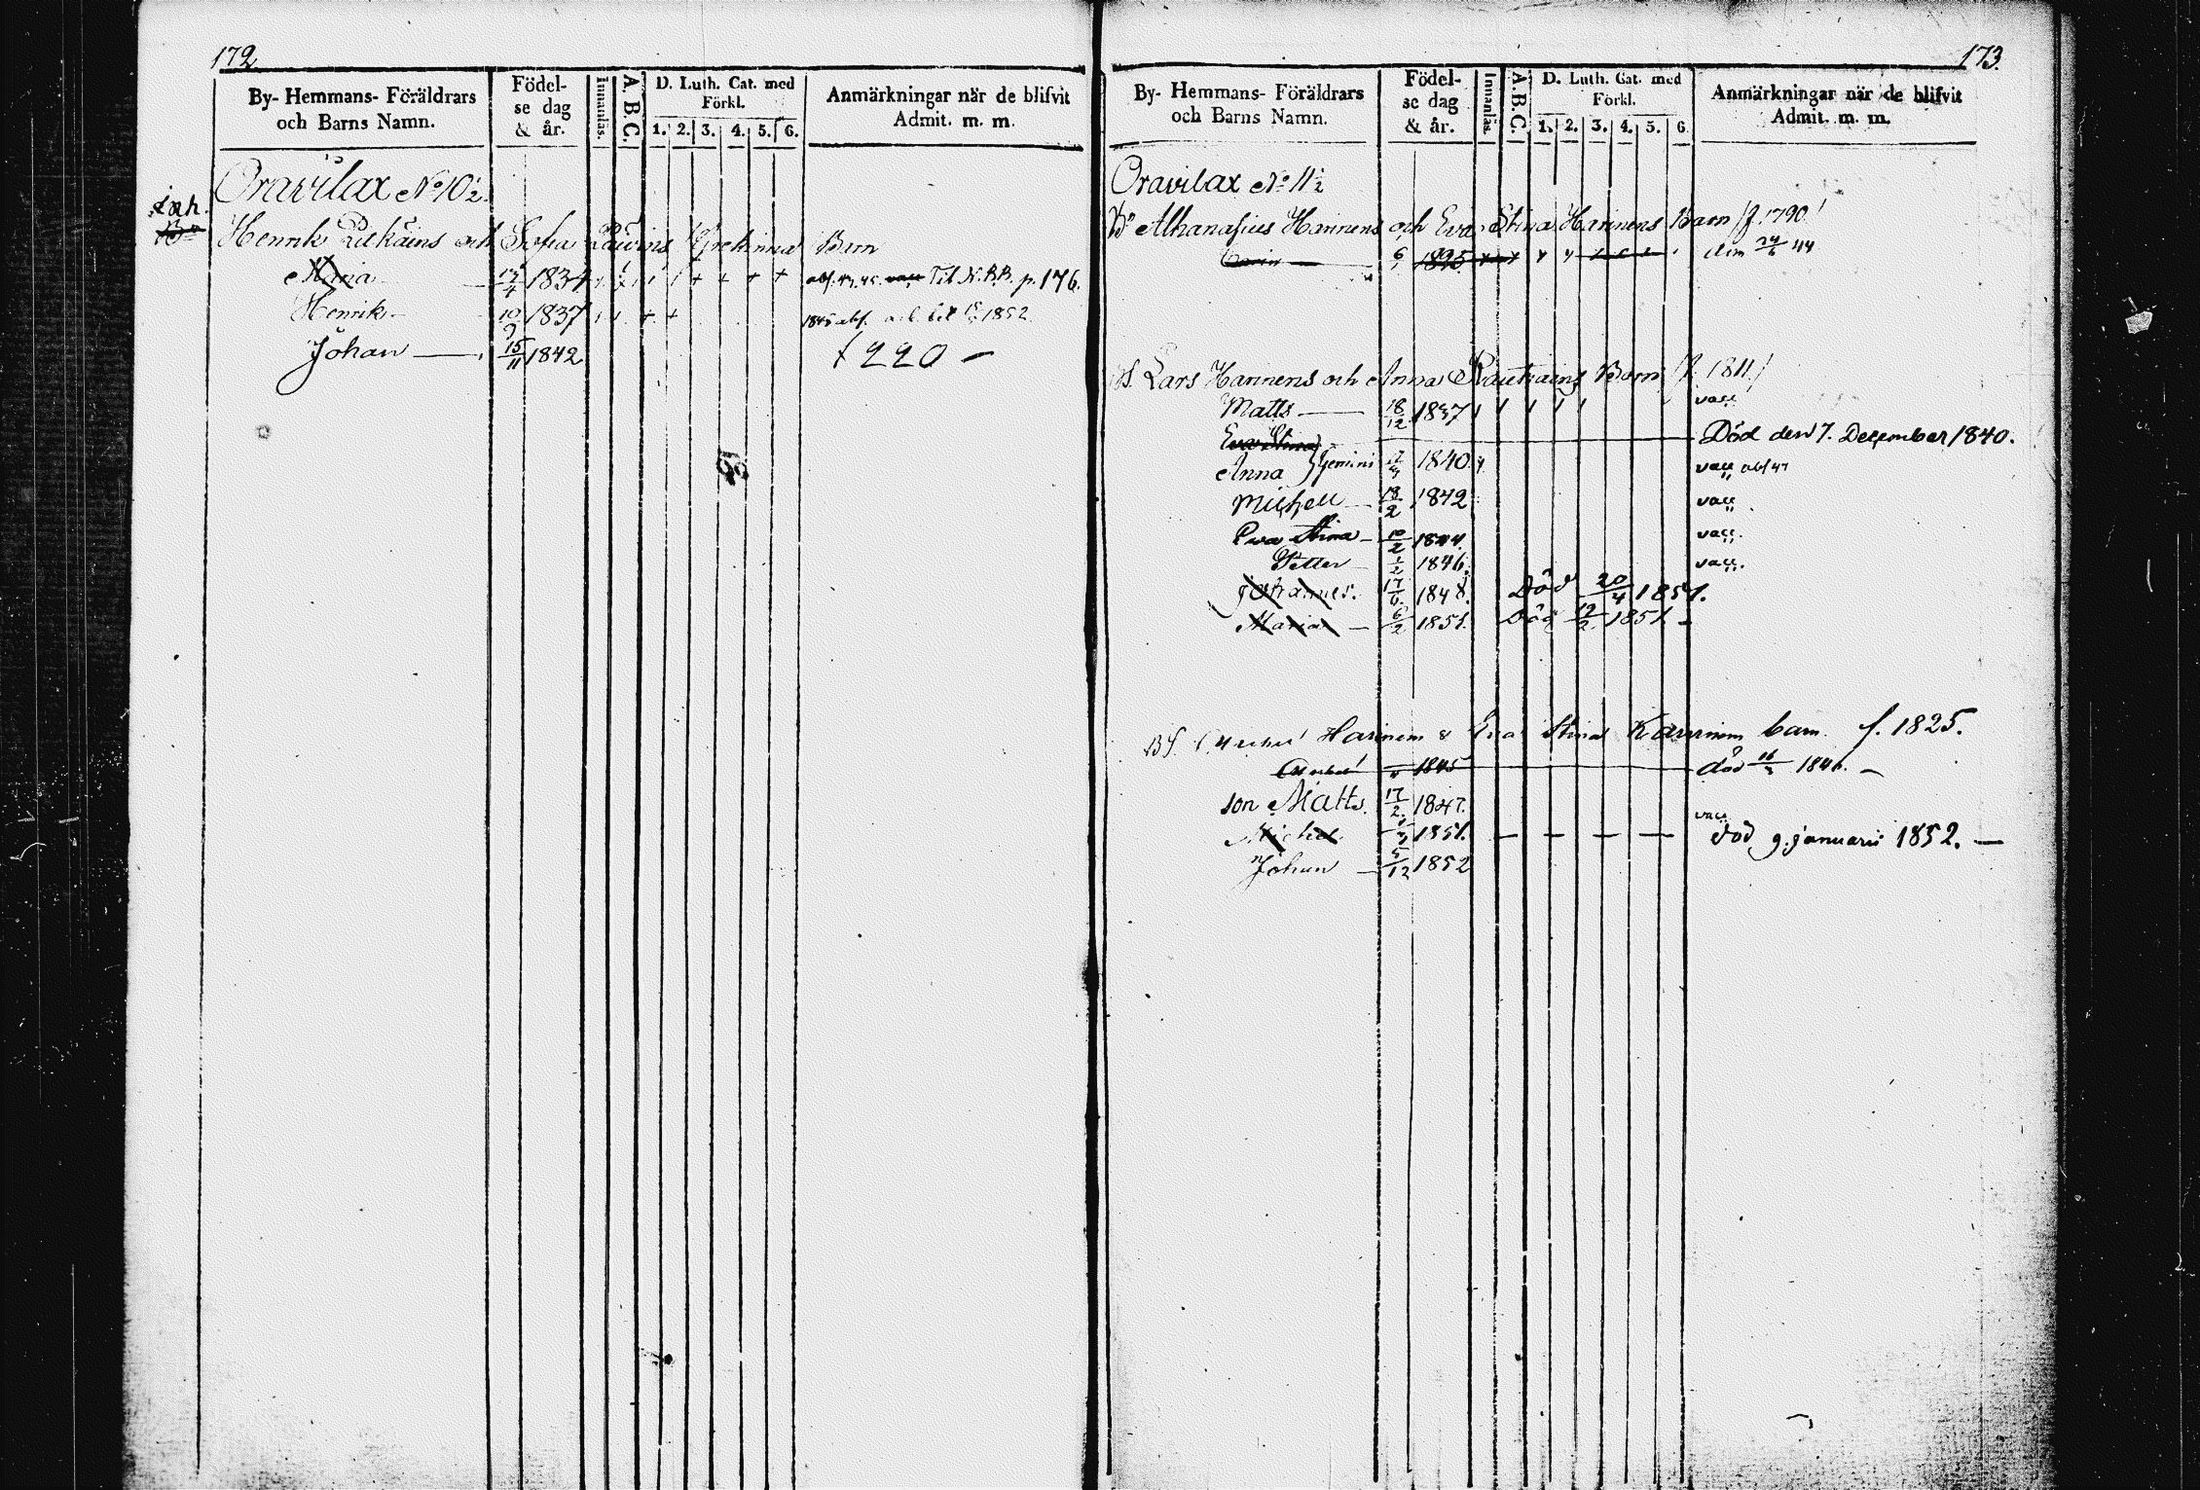 172
By- Hemmans- Föräldrars och Barns Namn.
Födelse dag & år.
Innanläs.
A. B. C.
D. Luth. Cat. med Förkl.
1. 2. 3. 4. 5. 6.
Anmärkningar när de blifvit Admit. m. m.
Oravilax No 10½.
inh.
Henrik och Sofia Barn
Maria 1834 Til N.B.B. p. 176.
Henrik 10/9 1837 1845 abs. 1852
Johan 15/11 1842 220
173.
By- Hemmans- Föräldrars och Barns Namn.
Födelse dag & år.
Innanläs.
A. B. C.
D. Luth. Cat. med Förkl.
1. 2. 3. 4. 5. 6.
Anmärkningar när de blifvit Admit. m. m.
Oravilax No 11½
Athanasius Hannens och Eva Stina Hannens Barn /f. 1790/
1825 dim 24/6 44
BS. Lars Hannens och Anna Barn /f. 1811./
Matts 18/12 1837 vacc
Eva Stina Död den 7. December 1840.
Anna Gemini 1840 vacc abs 47
Michell 18/2 1842 vacc
Eva Stina 10/2 1844 vacc.
Petter 1846 vacc.
Johannes. 17/6 1848. Död 20/4 1851.
Maria 6/2 1851. Död 12/2 1851.
BS. Hannens & Eva Stina barn f. 1825.
1845 död 16/3 1846.
son Matts. 17/2 1847. vacc
Michel 1851. död 9. januari 1852.
Johan 5/12 1852